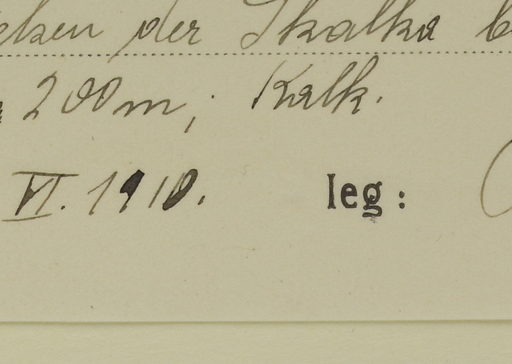 der Skalka
200m; Kalk.
VI. 1910. leg: